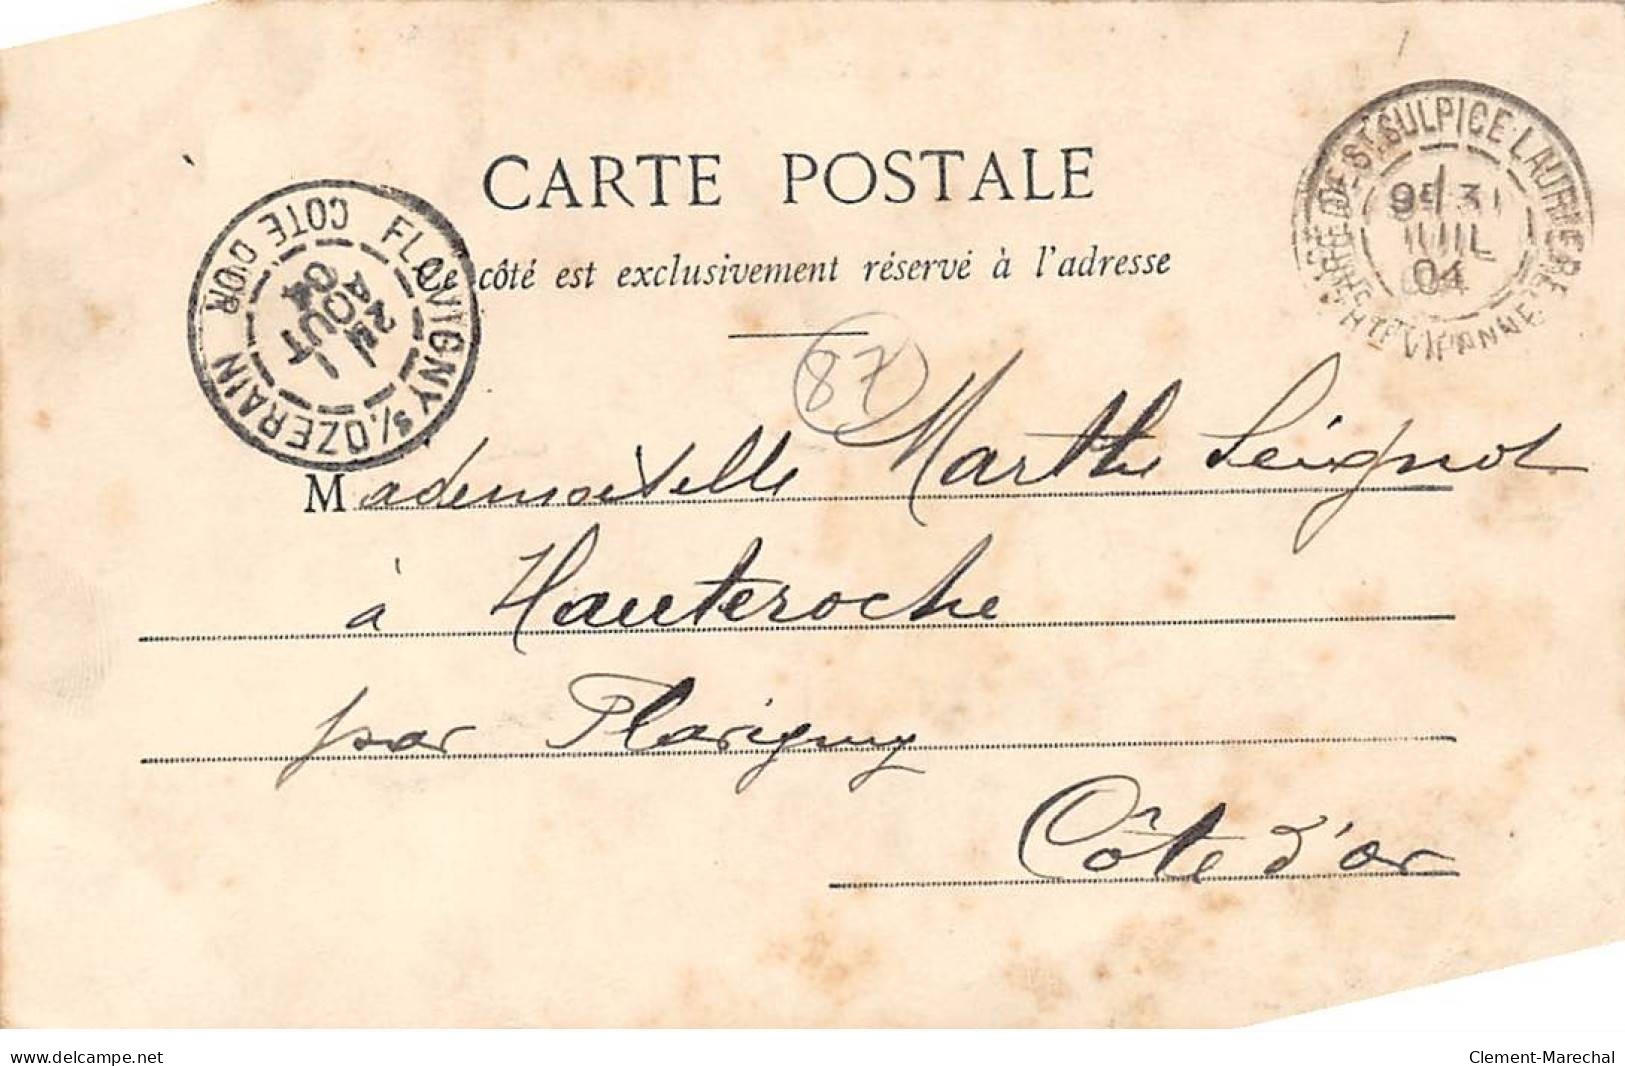 CARTE POSTALE
Ce côté est exclusivement réservé à l'adresse
FLAVIGNY s/. OZERAIN
COTE D'OR
AOUT
04
GARE DE ST SULPICE-LAURIERE
HTE VIENNE
31
JUIL
04
87
Mademoiselle Marthe Seignot
à Hauteroche
par Flavigny
Côte d'or
www.delcampe.net
Clement-Marechal